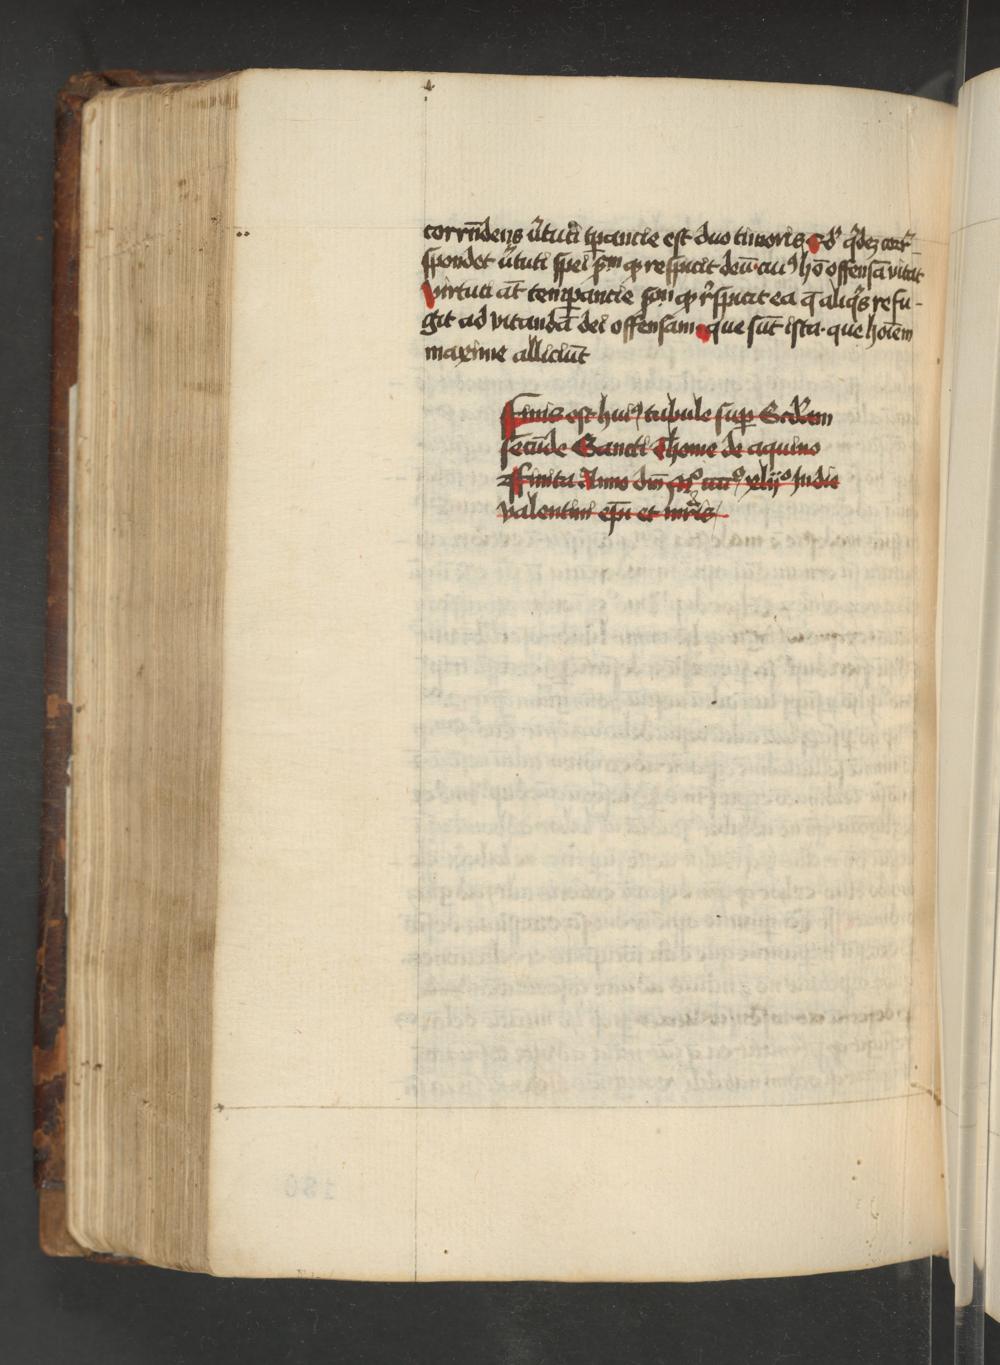 corrn̄dens v̄tuti tp̄ancie est duo timoris S᷒ q̄dez corr̄
spondet v̄tuti spei pm̄ qͥ respicit deū cuiꝰ hō offensā vitat
virtuti at̄ temp̄antie qͥ r̄spicit ea q̄ aliqͥs refu-
git ad vitandā dei offensam que sūt ista · que hoīem
maxime alliciūt
Finis est huiꝰ tabule sup̄ Scd̄am
secūde Sancti Thome de aquino
Finita Anno dm̄ mͦ xlijͦ In die
valentini ep̄i et mr̄is
180